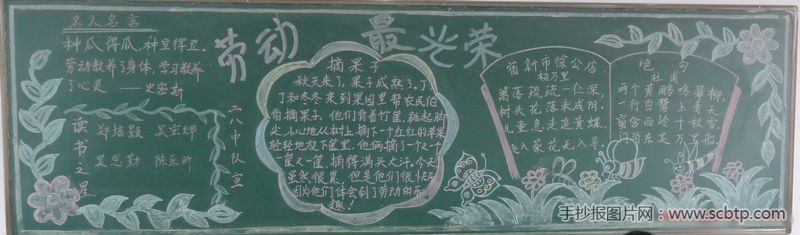 劳动 最光荣
名人名言
种瓜得瓜,种豆得豆。
劳动教养了身体,学习教养
了心灵 ——史密斯
读书之星
吴宏烨
吴思勤 陈乐昕
二八中队宣
摘果子
秋天来了,果子成熟了。丁
丁和冬冬来到果园里帮农民伯
伯摘果子。他们背着竹筐,踮起脚
尖,小心地从树上摘下一个红红的苹果
轻轻地放下筐里。他俩摘了一个又一个
一筐又一筐,摘得满头大汗。今天
虽然很累,但是他们很快乐
因为他们体会到了劳动的乐
趣!
宿新市徐公店
杨万里
篱落疏疏一径深,
树头花落未成阴。
儿童急走追黄蝶,
飞入菜花无入寻。
绝句
杜甫
两个黄鹂鸣翠柳,
一行白鹭上青天。
窗含西岭千秋雪,
门泊东吴万里船。
手抄报图片网
www.scbtp.com